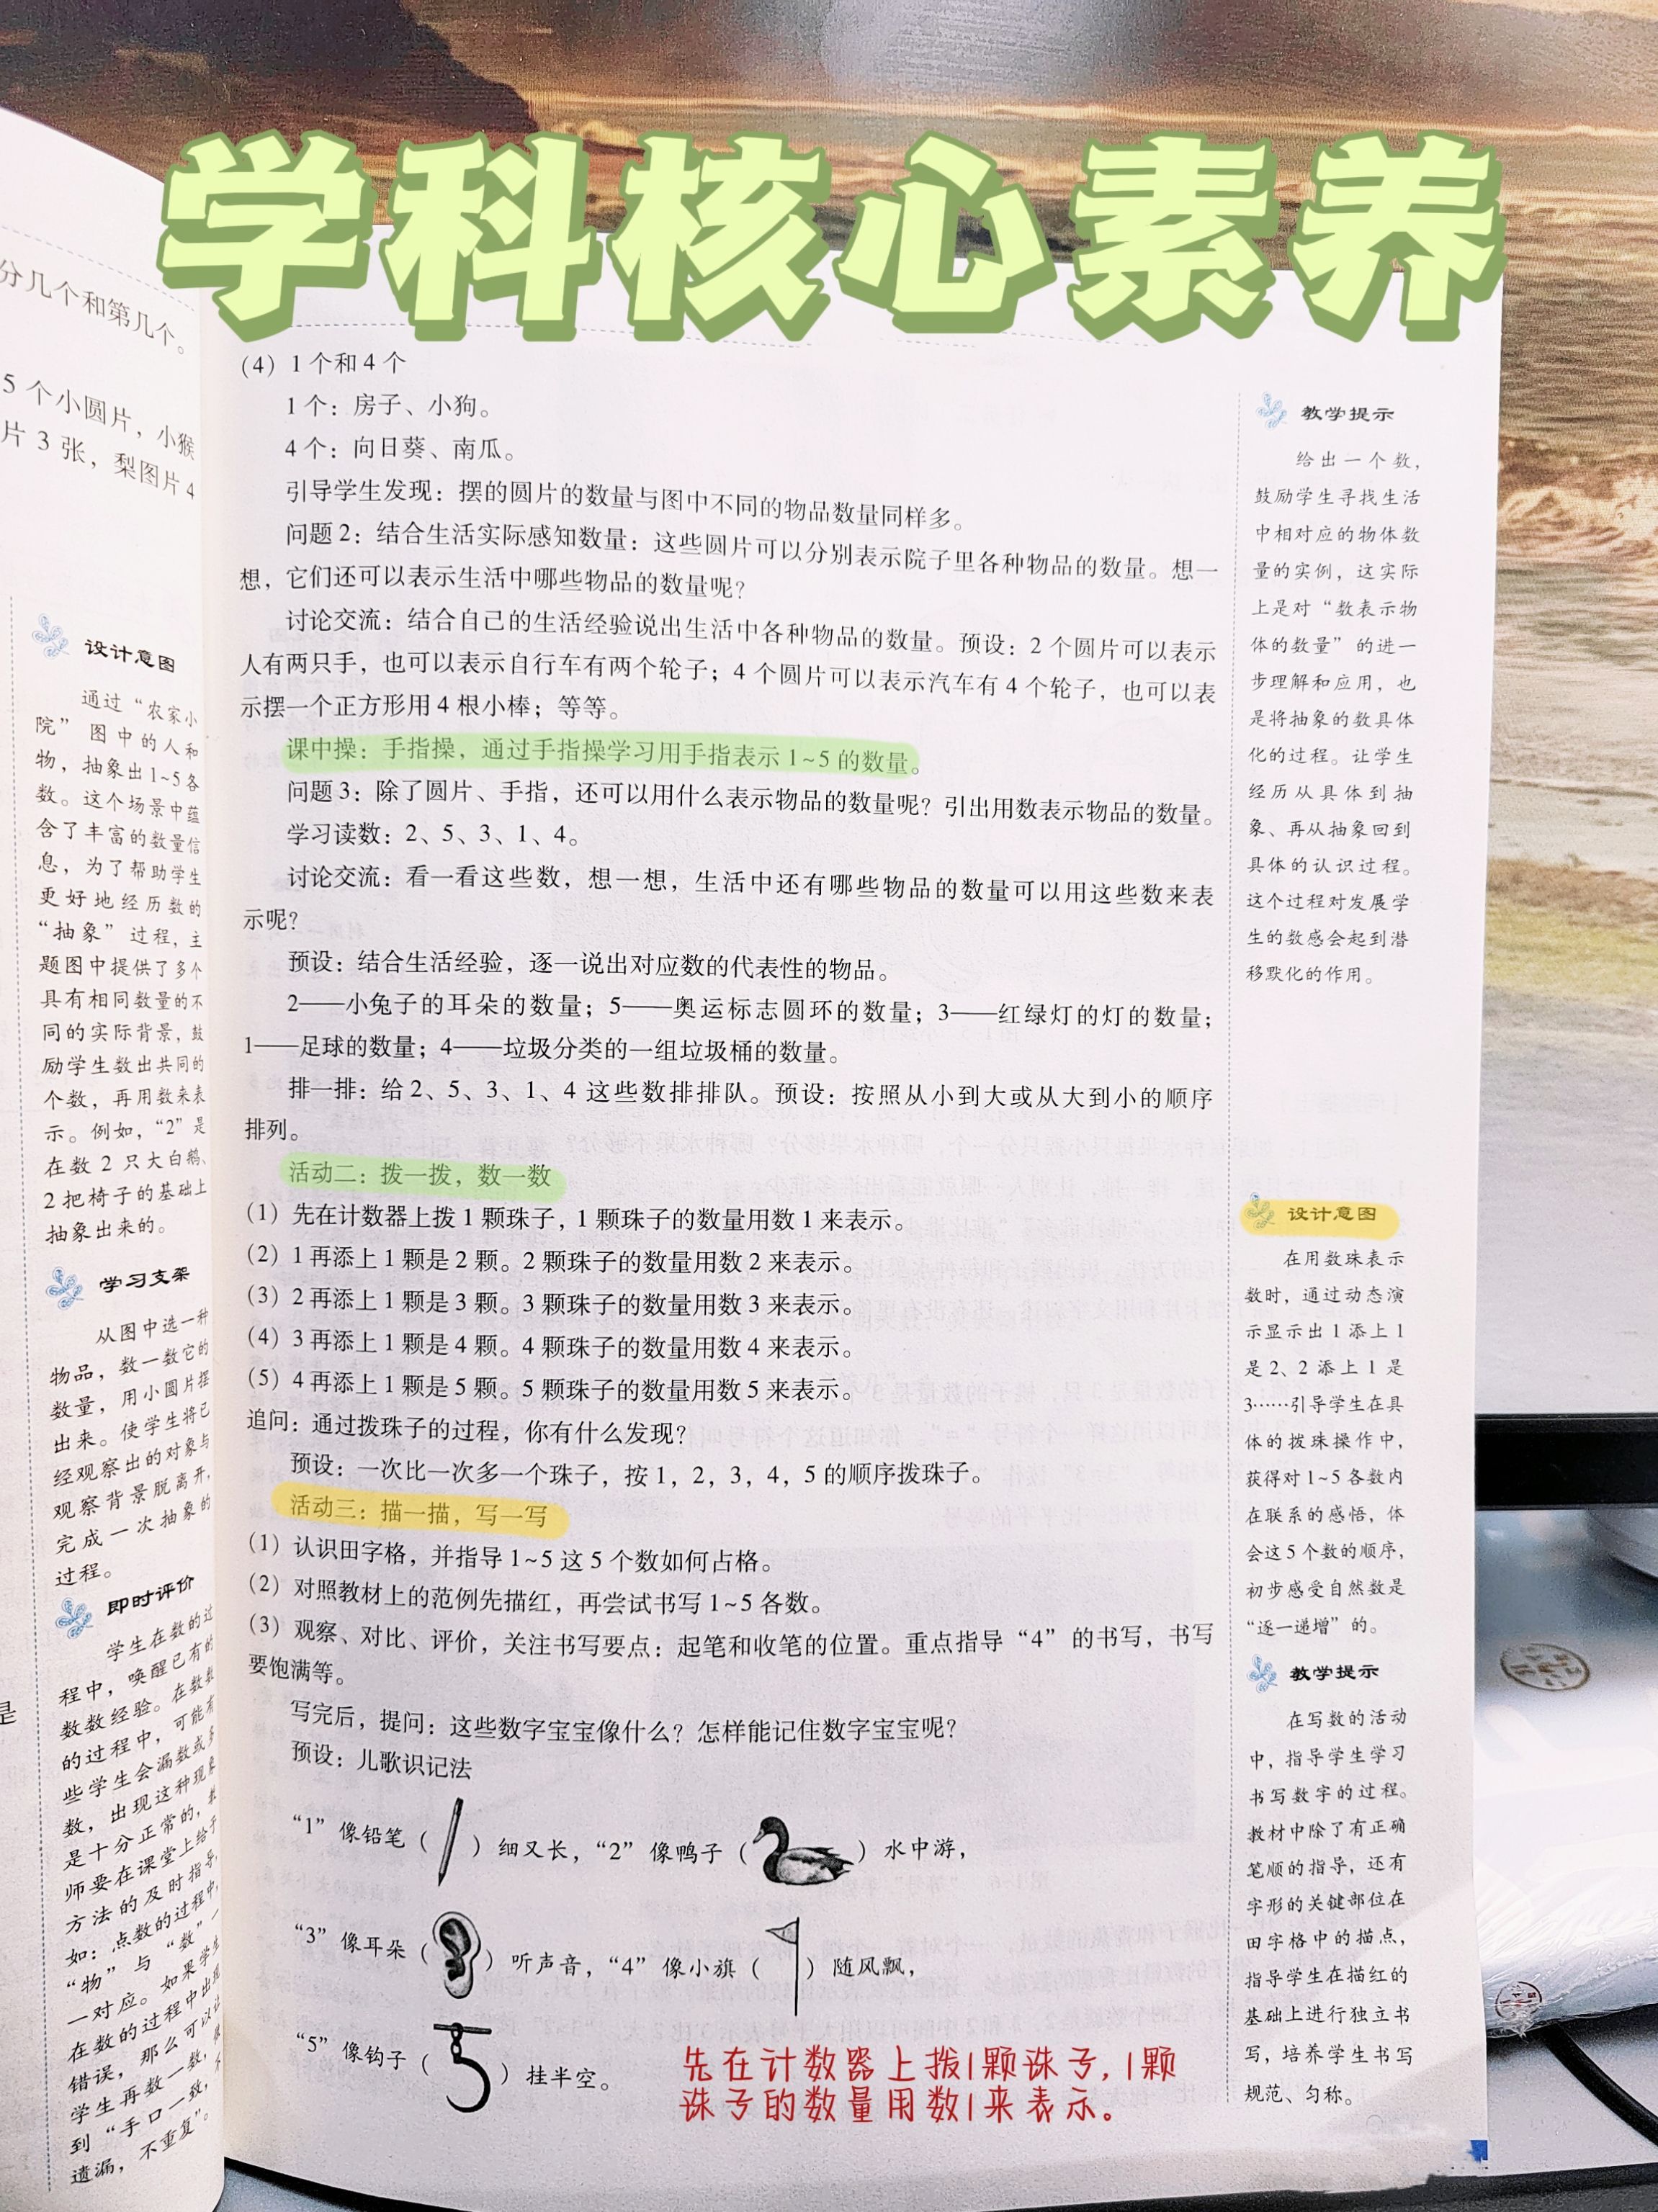 学科核心素养
分几个和第几个。
5个小圆片，小猴
片3张，梨图片4
设计意图
通过“农家小
院”图中的人和
物，抽象出1~5各
数。这个场景中蕴
含了丰富的数量信
息，为了帮助学生
更好地经历数的
“抽象”过程，主
题图中提供了多个
具有相同数量的不
同的实际背景，鼓
励学生数出共同的
个数，再用数来表
示。例如，“2”是
在数2只大白鹅、
2把椅子的基础上
抽象出来的。
学习支架
从图中选一种
物品，数一数它的
数量，用小圆片摆
出来。使学生将已
经观察出的对象与
观察背景脱离开，
完成一次抽象的
过程。
即时评价
学生在数的过
程中，唤醒已有的
数数经验。在数数
的过程中，可能有
些学生会漏数或多
数，出现这种现象
是十分正常的，教
师要在课堂上给予
方法的及时指导，
如：点数的过程中，
“物”与“数”一
一对应。如果学生
在数的过程中出现
错误，那么可以让
学生再数一数，
到“手口一致，不
遗漏，不重复”。
是
(4) 1个和4个
1个：房子、小狗。
4个：向日葵、南瓜。
引导学生发现：摆的圆片的数量与图中不同的物品数量同样多。
问题2：结合生活实际感知数量：这些圆片可以分别表示院子里各种物品的数量。想一
想，它们还可以表示生活中哪些物品的数量呢？
讨论交流：结合自己的生活经验说出生活中各种物品的数量。预设：2个圆片可以表示
人有两只手，也可以表示自行车有两个轮子；4个圆片可以表示汽车有4个轮子，也可以表
示摆一个正方形用4根小棒；等等。
课中操：手指操，通过手指操学习用手指表示1~5的数量。
问题3：除了圆片、手指，还可以用什么表示物品的数量呢？引出用数表示物品的数量。
学习读数：2、5、3、1、4。
讨论交流：看一看这些数，想一想，生活中还有哪些物品的数量可以用这些数来表
示呢？
预设：结合生活经验，逐一说出对应数的代表性的物品。
2——小兔子的耳朵的数量；5——奥运标志圆环的数量；3——红绿灯的灯的数量；
1——足球的数量；4——垃圾分类的一组垃圾桶的数量。
排一排：给2、5、3、1、4这些数排排队。预设：按照从小到大或从大到小的顺序
排列。
活动二：拨一拨，数一数
(1) 先在计数器上拨1颗珠子，1颗珠子的数量用数1来表示。
(2) 1再添上1颗是2颗。2颗珠子的数量用数2来表示。
(3) 2再添上1颗是3颗。3颗珠子的数量用数3来表示。
(4) 3再添上1颗是4颗。4颗珠子的数量用数4来表示。
(5) 4再添上1颗是5颗。5颗珠子的数量用数5来表示。
追问：通过拨珠子的过程，你有什么发现？
预设：一次比一次多一个珠子，按1，2，3，4，5的顺序拨珠子。
活动三：描一描，写一写
(1) 认识田字格，并指导1~5这5个数如何占格。
(2) 对照教材上的范例先描红，再尝试书写1~5各数。
(3) 观察、对比、评价，关注书写要点：起笔和收笔的位置。重点指导“4”的书写，书写
要饱满等。
写完后，提问：这些数字宝宝像什么？怎样能记住数字宝宝呢？
预设：儿歌识记法
“1”像铅笔（ ）细又长，“2”像鸭子（ ）水中游，
“3”像耳朵（ ）听声音，“4”像小旗（ ）随风飘，
“5”像钩子（ ）挂半空。
先在计数器上拨1颗诛子，1颗
诛子的数量用数1来表示。
教学提示
给出一个数，
鼓励学生寻找生活
中相对应的物体数
量的实例，这实际
上是对“数表示物
体的数量”的进一
步理解和应用，也
是将抽象的数具体
化的过程。让学生
经历从具体到抽
象、再从抽象回到
具体的认识过程。
这个过程对发展学
生的数感会起到潜
移默化的作用。
设计意图
在用数珠表示
数时，通过动态演
示显示出1添上1
是2、2添上1是
3……引导学生在具
体的拨珠操作中，
获得对1~5各数内
在联系的感悟，体
会这5个数的顺序，
初步感受自然数是
“逐一递增”的。
教学提示
在写数的活动
中，指导学生学习
书写数字的过程。
教材中除了有正确
笔顺的指导，还有
字形的关键部位在
田字格中的描点，
指导学生在描红的
基础上进行独立书
写，培养学生书写
规范、匀称。